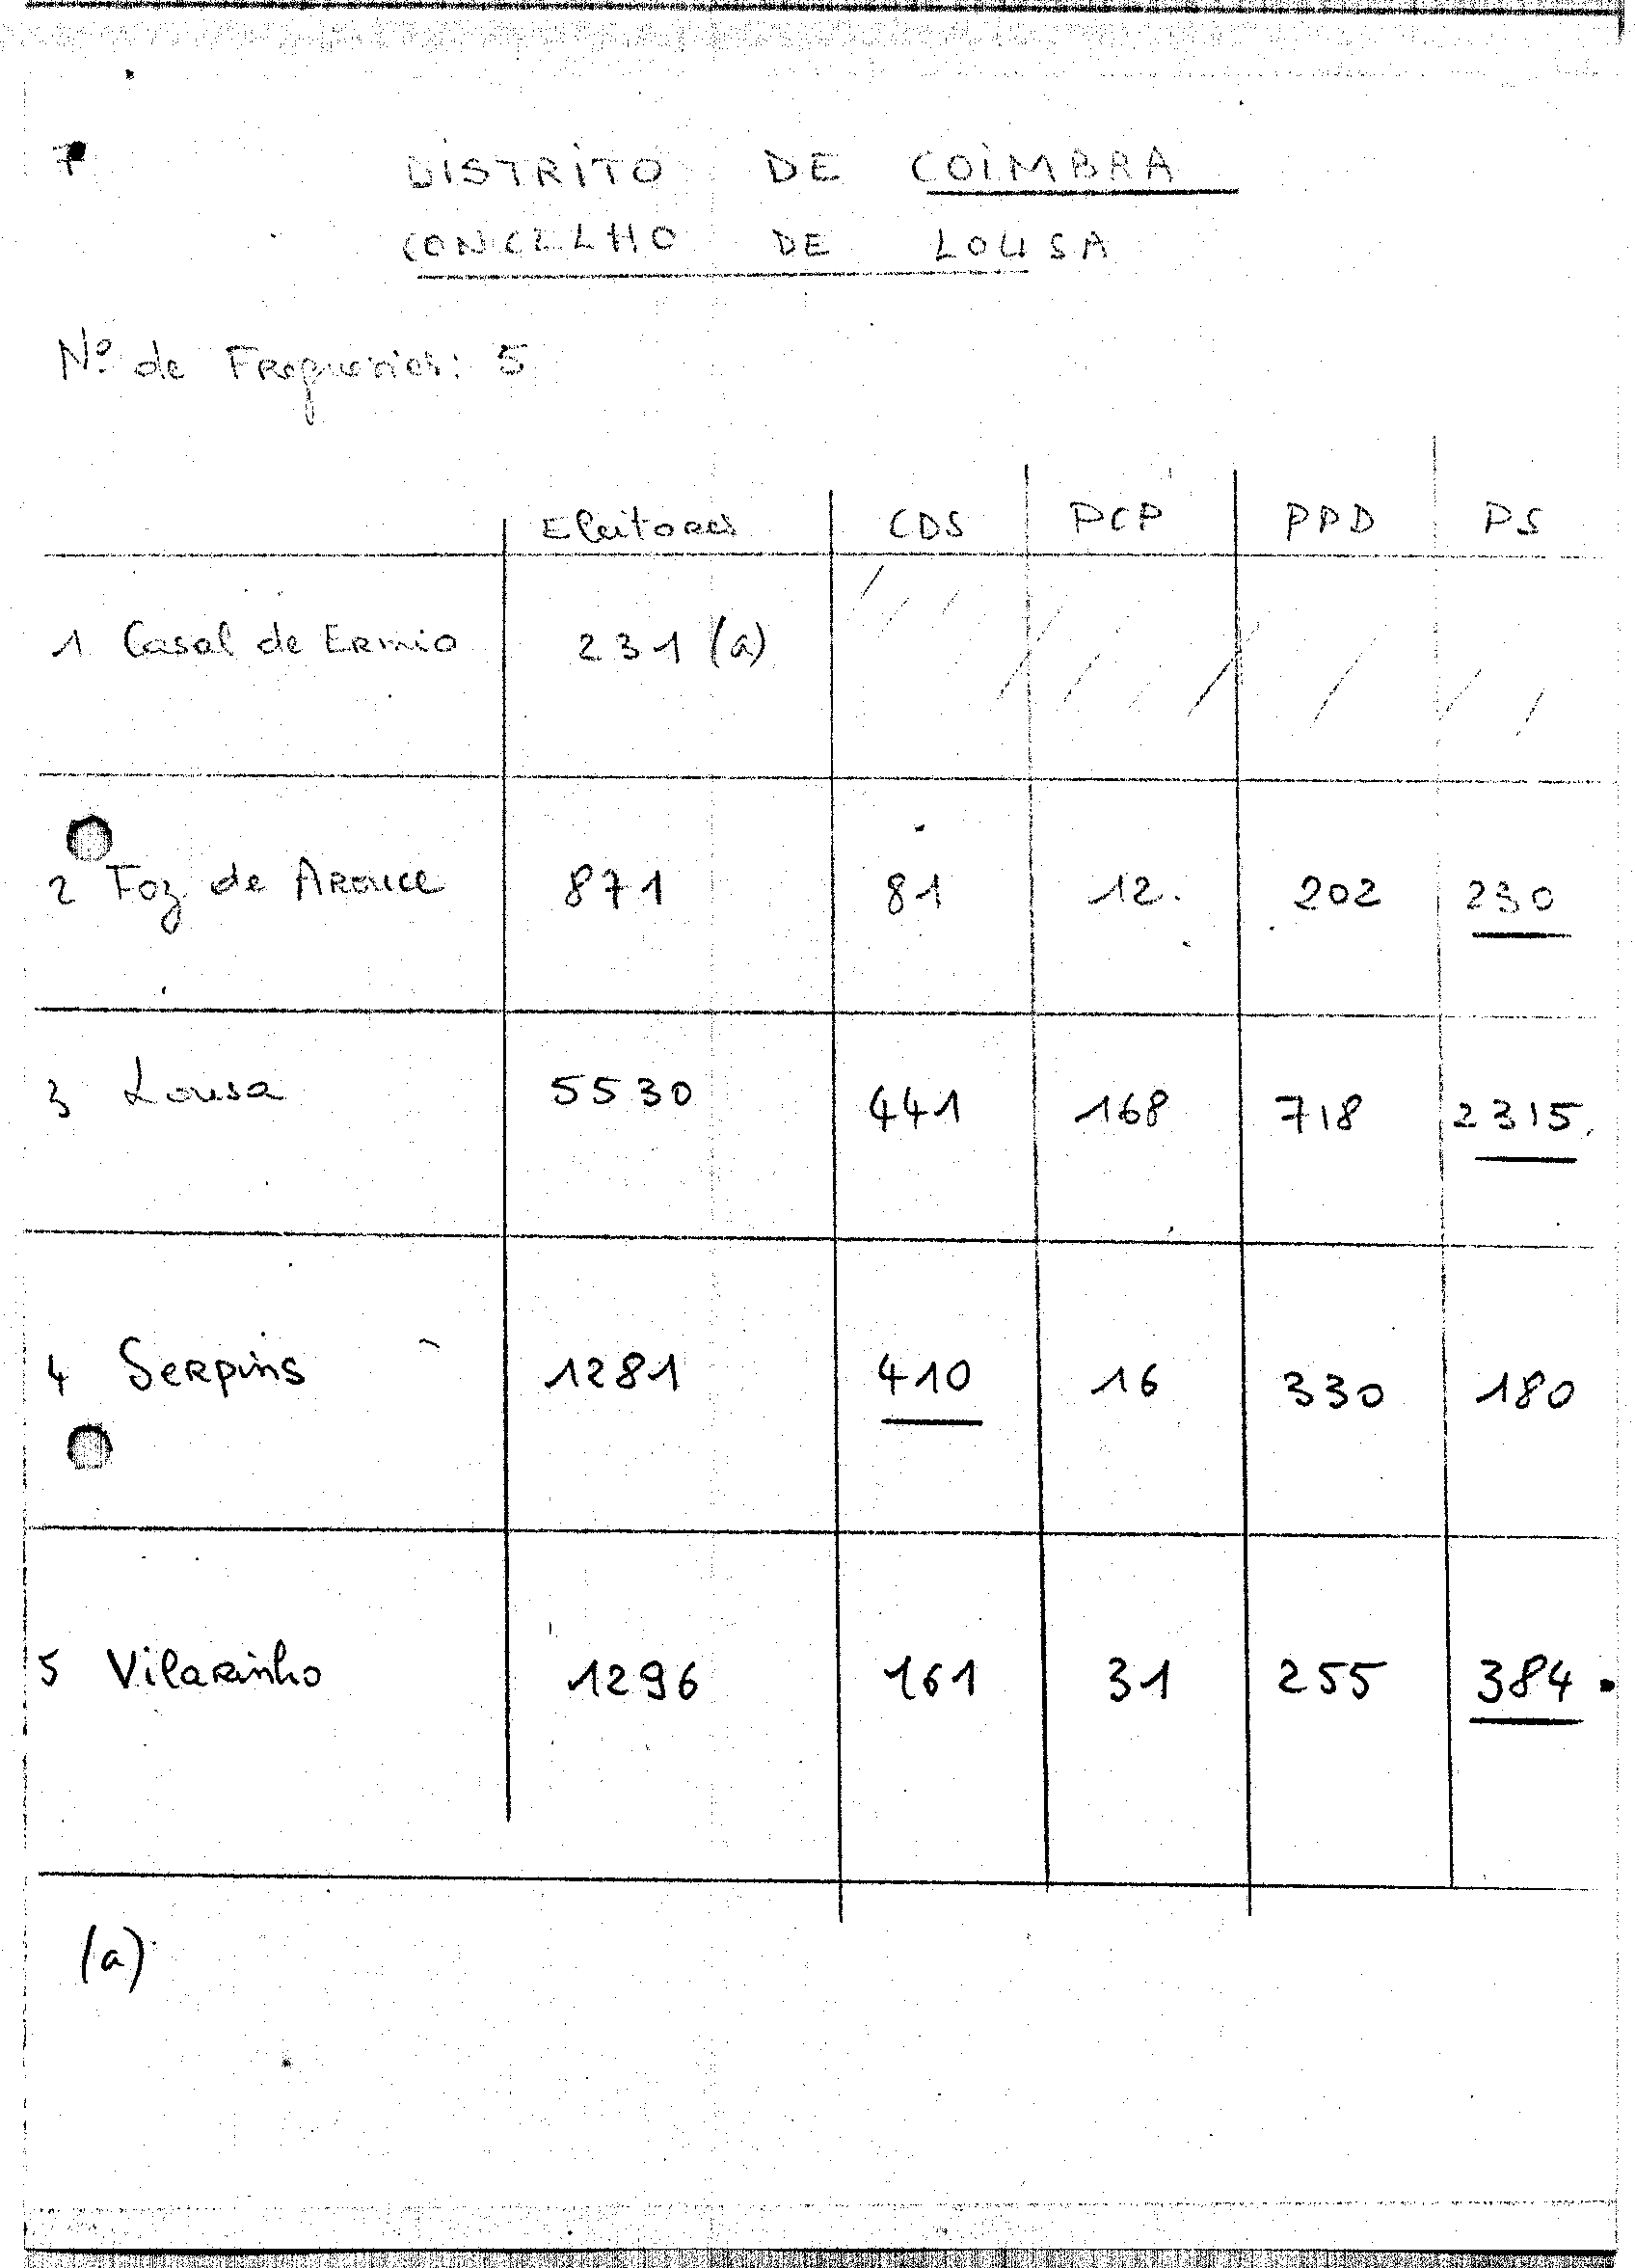 7
DISTRITO DE COIMBRA
CONCELHO DE LOUSA
Nº de Freguesias: 5
Eleitores CDS PCP PPD PS
1 Casal de Ermio 231 (a)
2 Foz de Arouce 871 81 12. 202 230
3 Lousa 5530 441 168 718 2315.
4 Serpins 1281 410 16 330 180
5 Vilarinho 1296 161 31 255 384.
(a)